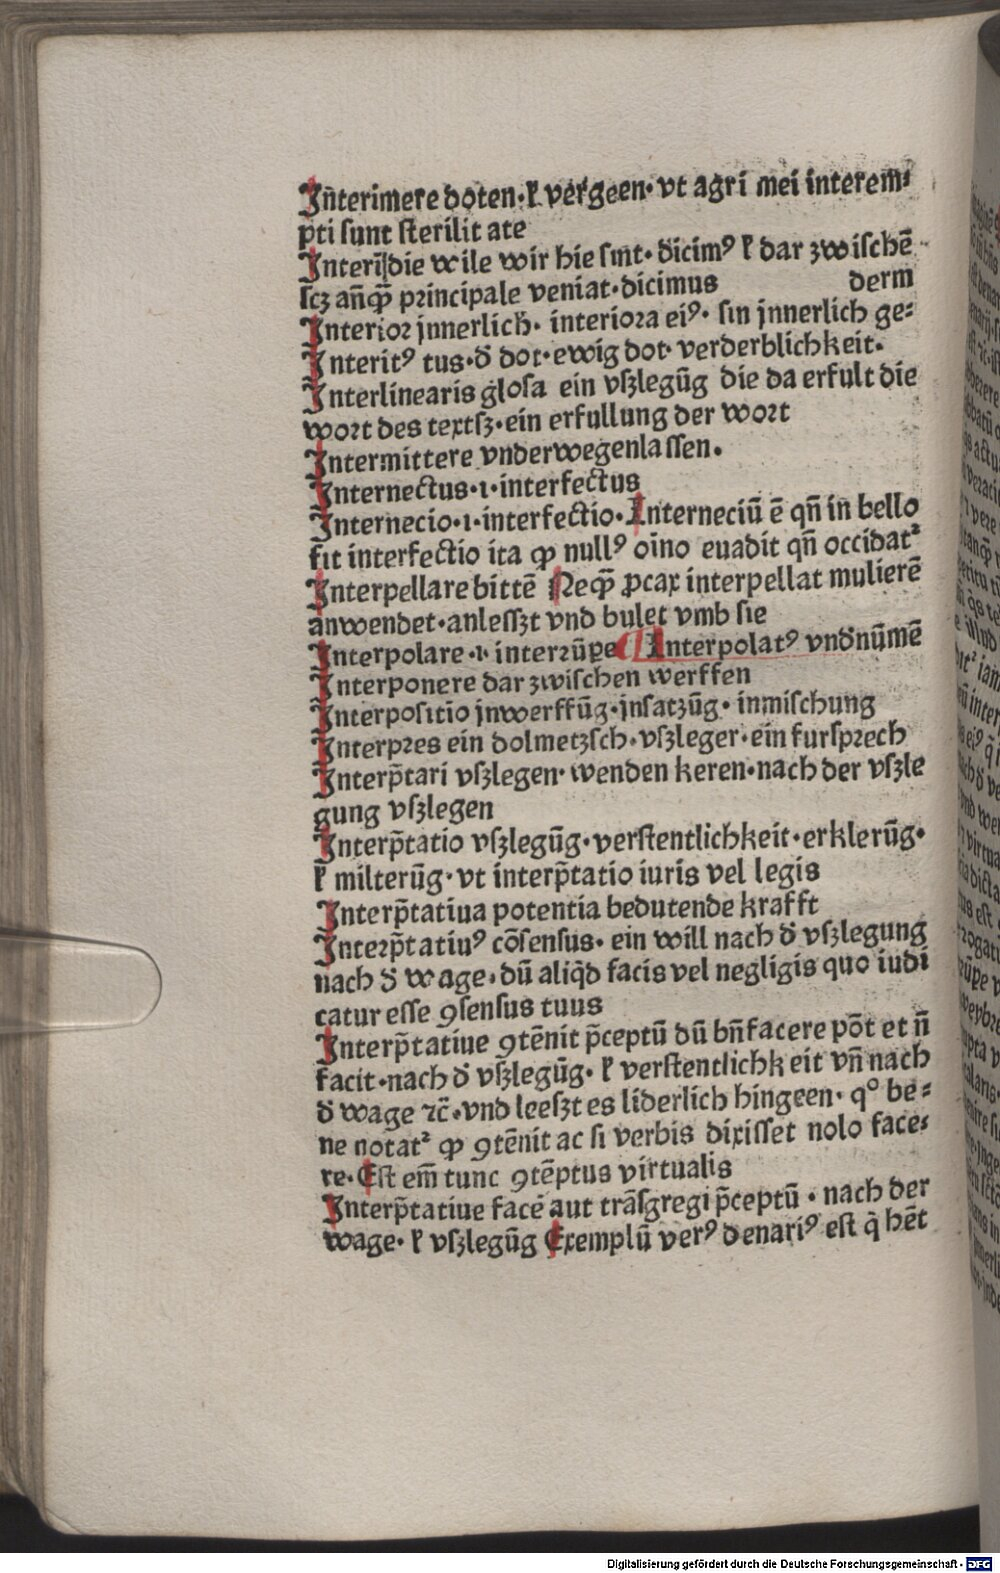 Jnterimere doten·ł vergeen· vt agri mei interem⸗
pti sunt sterilit ate
Jnteri͂ die wile wir hie sint· dicimꝰ ł dar zwischē
scꝫ an̄qꝫ̄ principale veniat·dicimus derm
Jnterior jnnerlich̄· interiora eiꝰ· sin jnnerlich ge⸗
Jnteritꝰ tus·d̄ dot·ewig dot· verderblichkeit·
Jnterlinearis glosa ein vſzlegūg die da erfult die
wort des textſz·ein erfullung der wort
Jntermittere vnderwegenla ssen.
Jnternectus·ı·interfectus
Jnternecio·ı·interfectio·Jnterneciū ē qn̄ in bello
fit interfectio ita ꝙ nullꝰ oīno euadit qn̄ occidatᷣ
Jnterpellare bittē Neqꝫ̄ ꝓcax interpellat mulierē
anwendet·anlesszt vnd bulet vmb sie
Jnterpolare·ı· interrūꝑe ¶ Jnterpolatꝰ vndnūmē
Jnterponere dar zwischen werffen
Jnterpositio jnwerffūg·jnsatzūg· inmischung
Jnterpres ein dolmetzsch·vſzleger·ein fursprech
Jnterp̄tari vſzlegen· wenden keren·nach der vſzle
gung vſzlegen
Jnterp̄tatio vſzlegūg·verstentlichkeit·erklerūg·
ł milterūg·vt interp̄tatio iuris vel legis
Jnterp̄tatiua potentia bedutende krafft
Jnterp̄tatiuꝰ cōsensus· ein will nach d̄ vſzlegung
nach d̄ wage·dū aliqd̄ facis vel negligis quo iudi
catur esse ꝯsensus tuus
Jnterp̄tatiue ꝯtēnit p̄ceptū dū bn̄facere pōt et n̄
facit·nach d̄ vſzlegūg· ł verstentlichk eit vn̄ nach
d̄ wage ⁊c̄·vnd leeſzt es liderlich hingeen· qº be⸗
ne notatᷣ ꝙ ꝯtēnit ac si verbis dixisset nolo face⸗
re·Est em̄ tunc ꝯtēptus virtualis
Jnterp̄tatiue facē aut trāsgregi p̄ceptū · nach der
wage· ł vſzlegūg Exemplū verꝰ denariꝰ est q̄ hēt
Digitalisierung gefördert durch die Deutsche Forschungsgemeinschaft · DFG